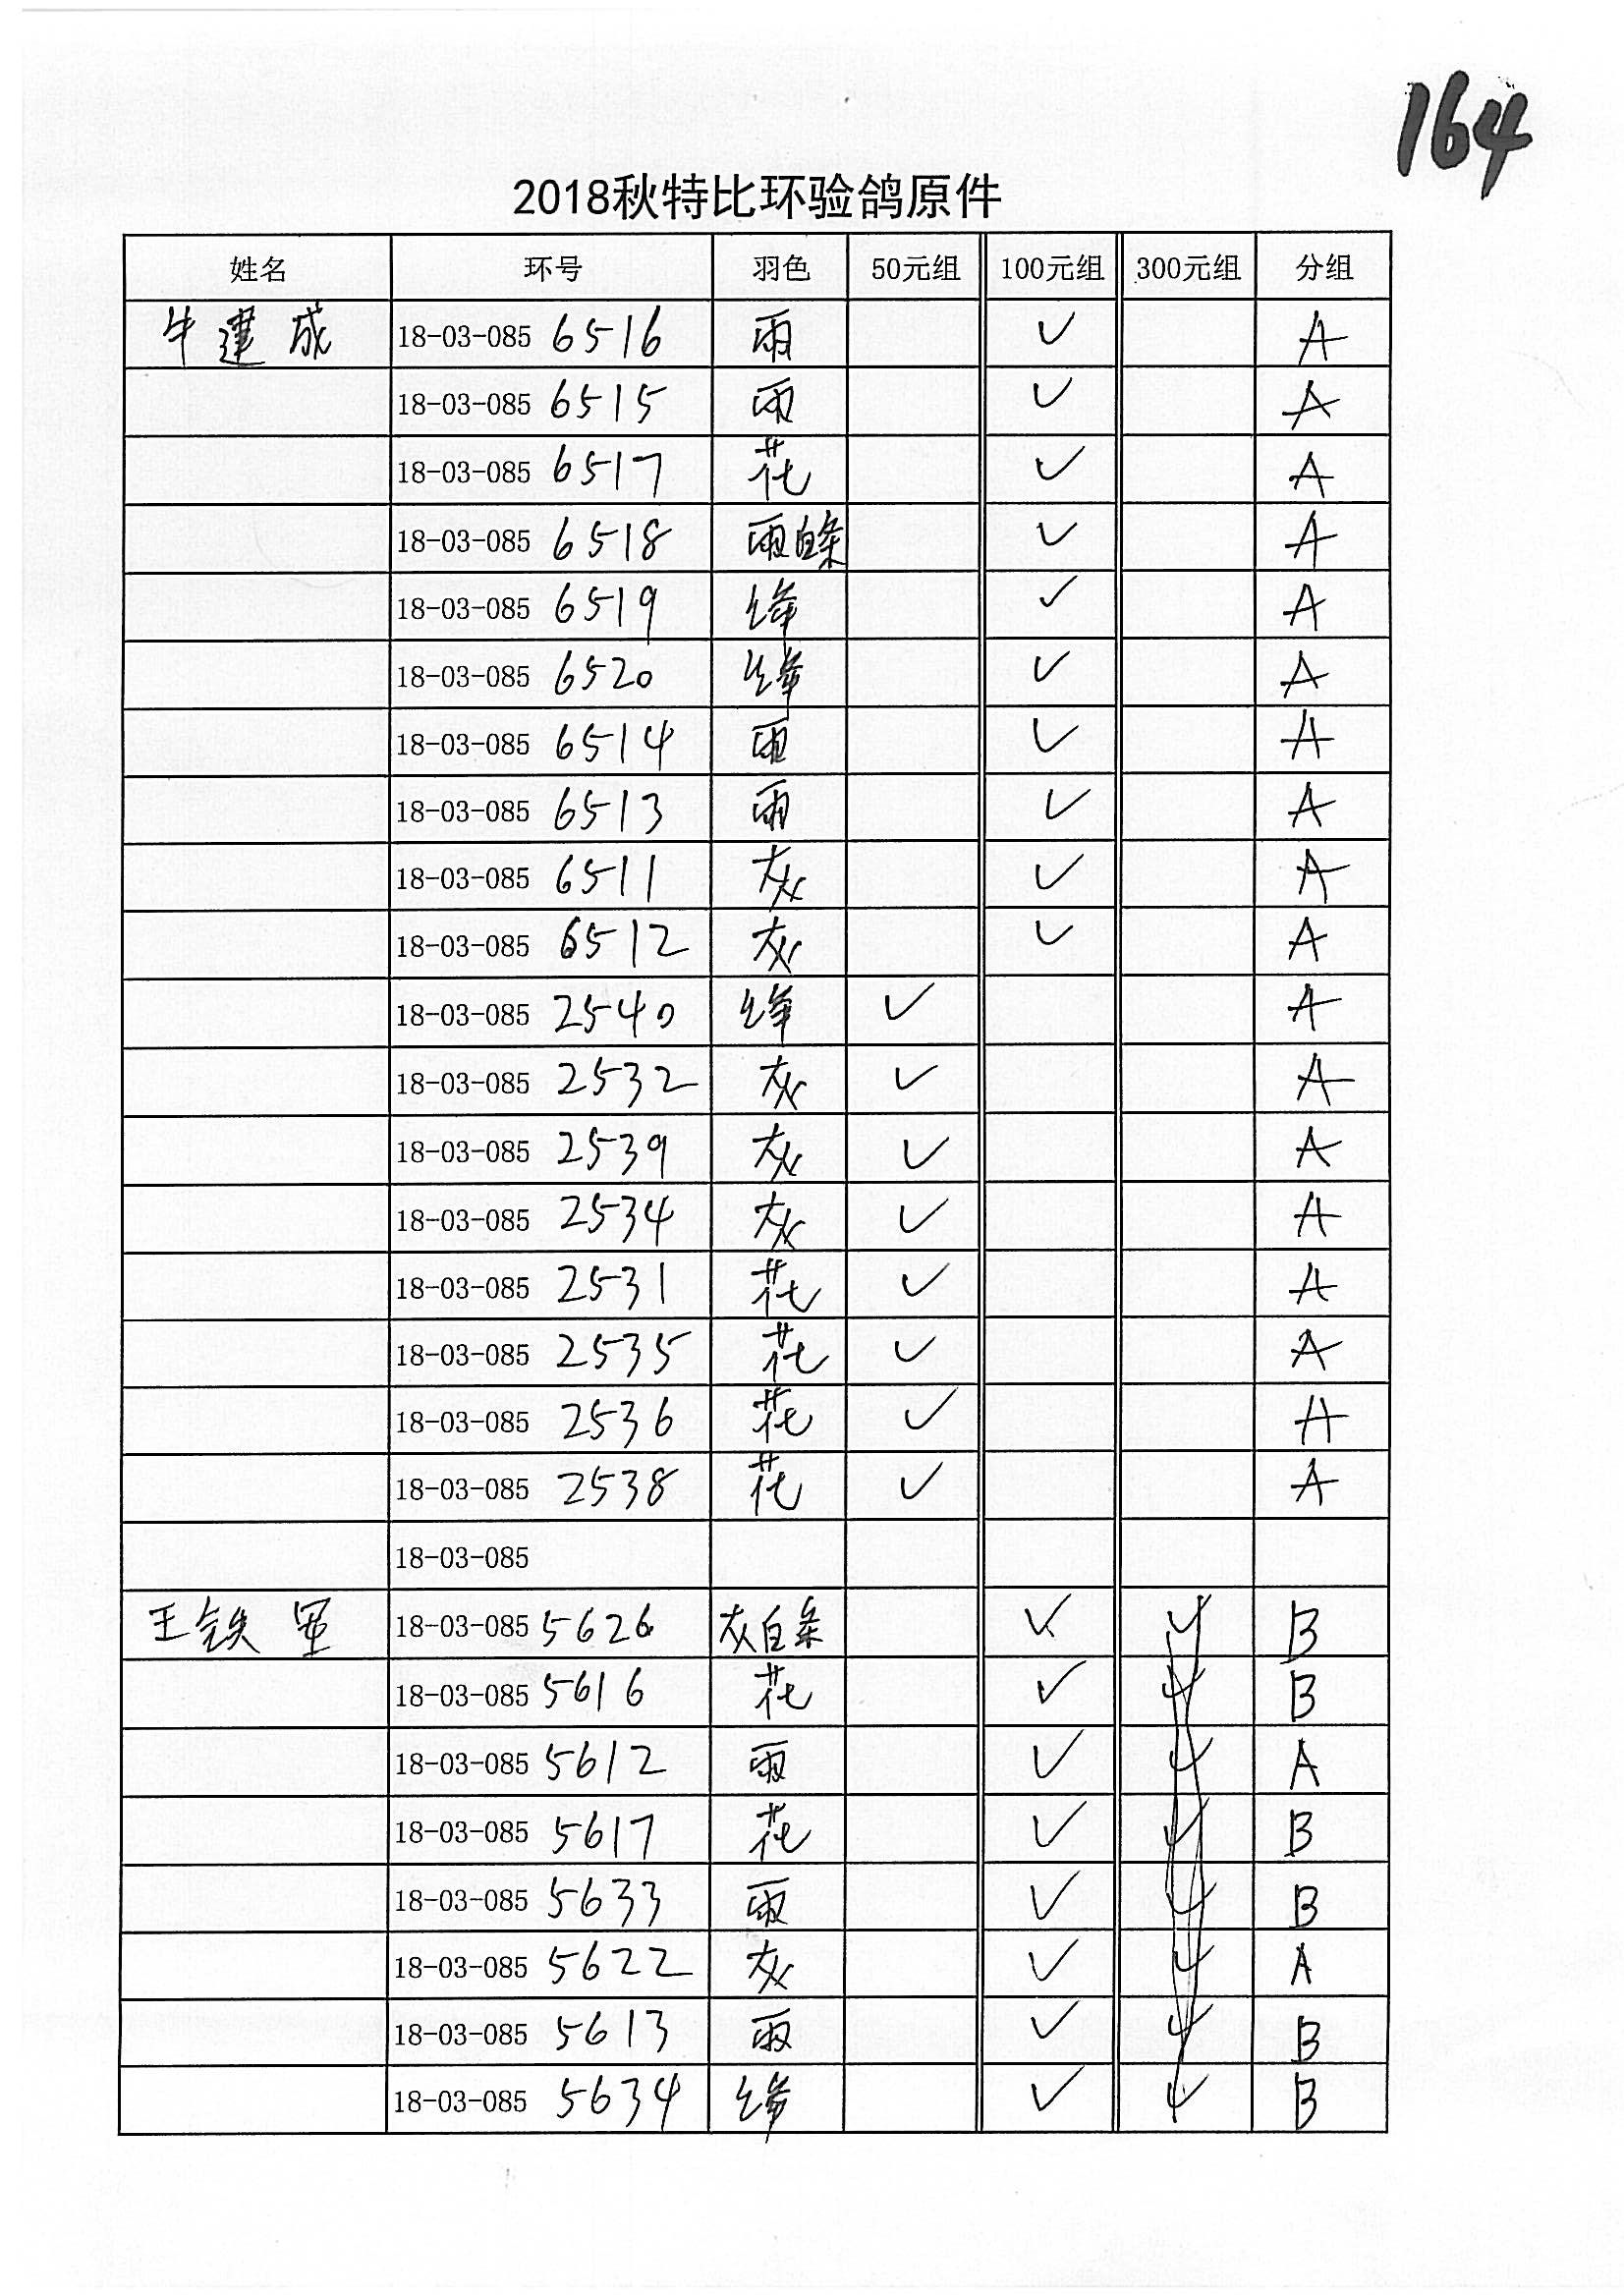 164
2018秋特比环验鸽原件
姓名 环号 羽色 50元组 100元组 300元组 分组
牛建成 18-03-085 6516 雨 ✓ A
18-03-085 6515 雨 ✓ A
18-03-085 6517 花 ✓ A
18-03-085 6518 雨白条 ✓ A
18-03-085 6519 绛 ✓ A
18-03-085 6520 绛 ✓ A
18-03-085 6514 雨 ✓ A
18-03-085 6513 雨 ✓ A
18-03-085 6511 灰 ✓ A
18-03-085 6512 灰 ✓ A
18-03-085 2540 绛 ✓ A
18-03-085 2532 灰 ✓ A
18-03-085 2539 灰 ✓ A
18-03-085 2534 灰 ✓ A
18-03-085 2531 花 ✓ A
18-03-085 2535 花 ✓ A
18-03-085 2536 花 ✓ A
18-03-085 2538 花 ✓ A
18-03-085
王铁军 18-03-085 5626 灰白条 ✓ ✓ B
18-03-085 5616 花 ✓ ✓ B
18-03-085 5612 雨 ✓ ✓ A
18-03-085 5617 花 ✓ ✓ B
18-03-085 5633 雨 ✓ ✓ B
18-03-085 5622 灰 ✓ ✓ A
18-03-085 5613 雨 ✓ ✓ B
18-03-085 5634 绛 ✓ ✓ B